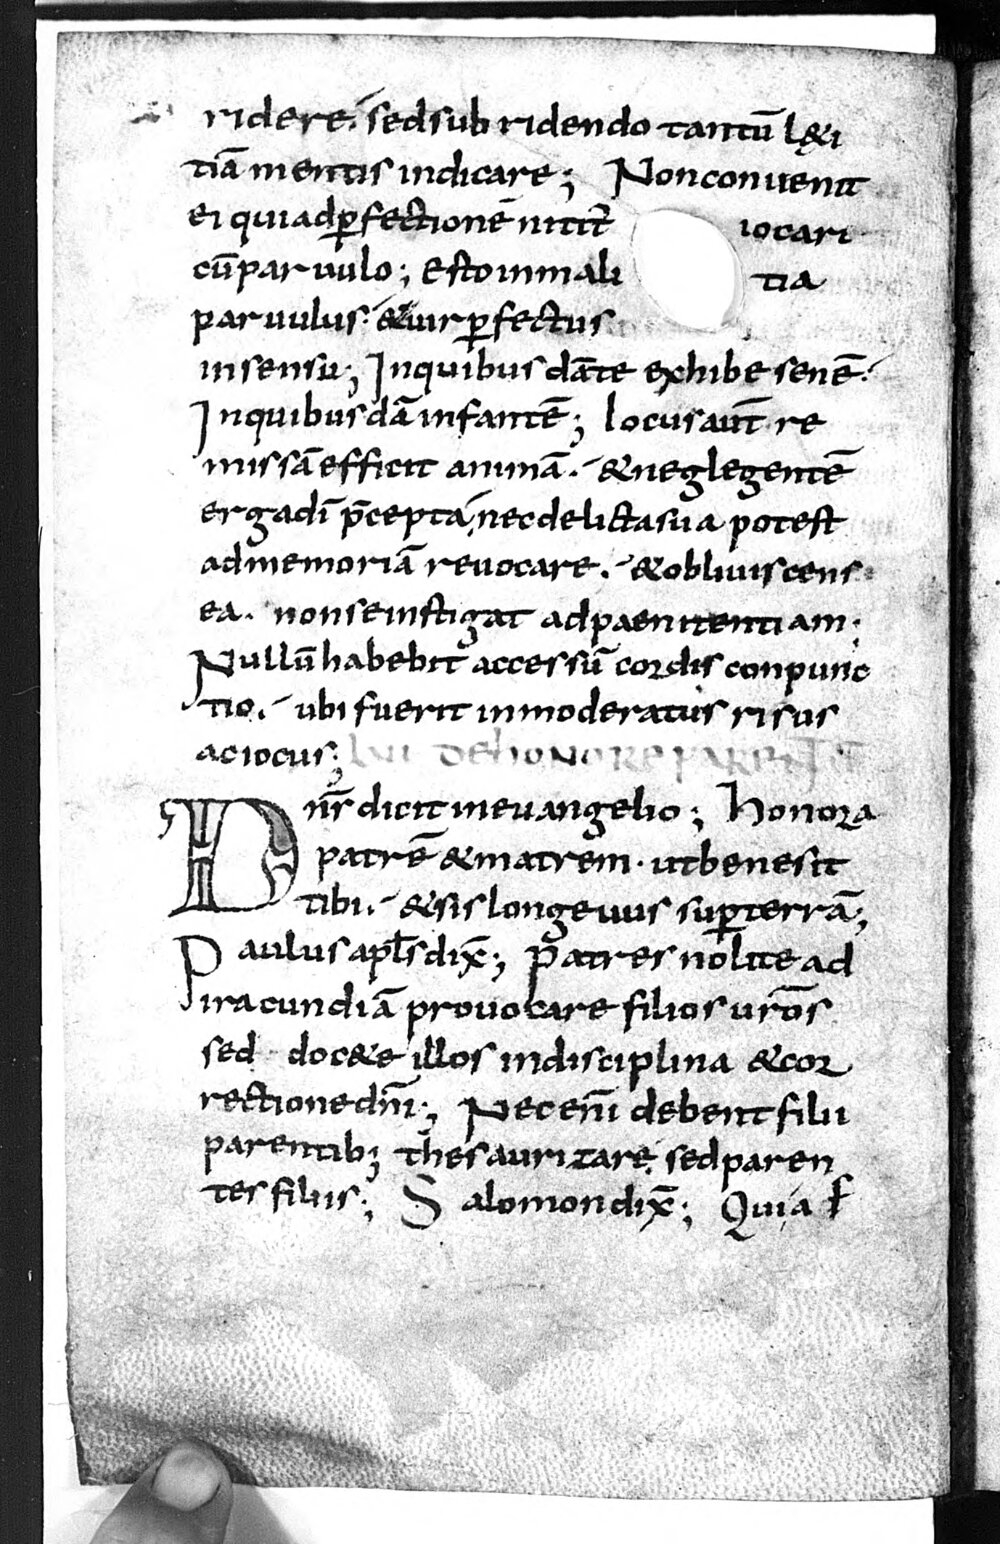 ridere. sed sub ridendo tantū lę&i
tiā mentis indicare; Non conuenit
ei qui ad ꝑfectionē nitit᷑ iocari
cū paruulo; Esto in mali tia
paruulus. & uir ꝑfectus
in sensu; In quibusdā te exhibe senē.
In quibusdā infantē; locus aut̄ re
missā efficit animā. & neglegentē
erga dī p̄cepta, nec delicta sua potest
ad memoriā revocare. & obliuiscens
ea. non se instigat ad paenitentiam;
Nullū habebit accessū cordis conpunc
tio. ubi fuerit inmoderatus risus
ac iocus; LVI DE HONORE PARENTŪ
Dn̄s dicit in evangelio; Honora
patrē & matrem. ut bene sit
tibi. & sis longeuus suꝑ terrā;
Paulus apl̄s dix̄; Patres nolite ad
iracundiā provocare filios ur̄os
sed doc&e illos in disciplina & cor
rectione dn̄i; Nec eni̅ debent filii
parentib; thesaurizare. sed paren
tes filiis; Salomon dix̄; Quia f